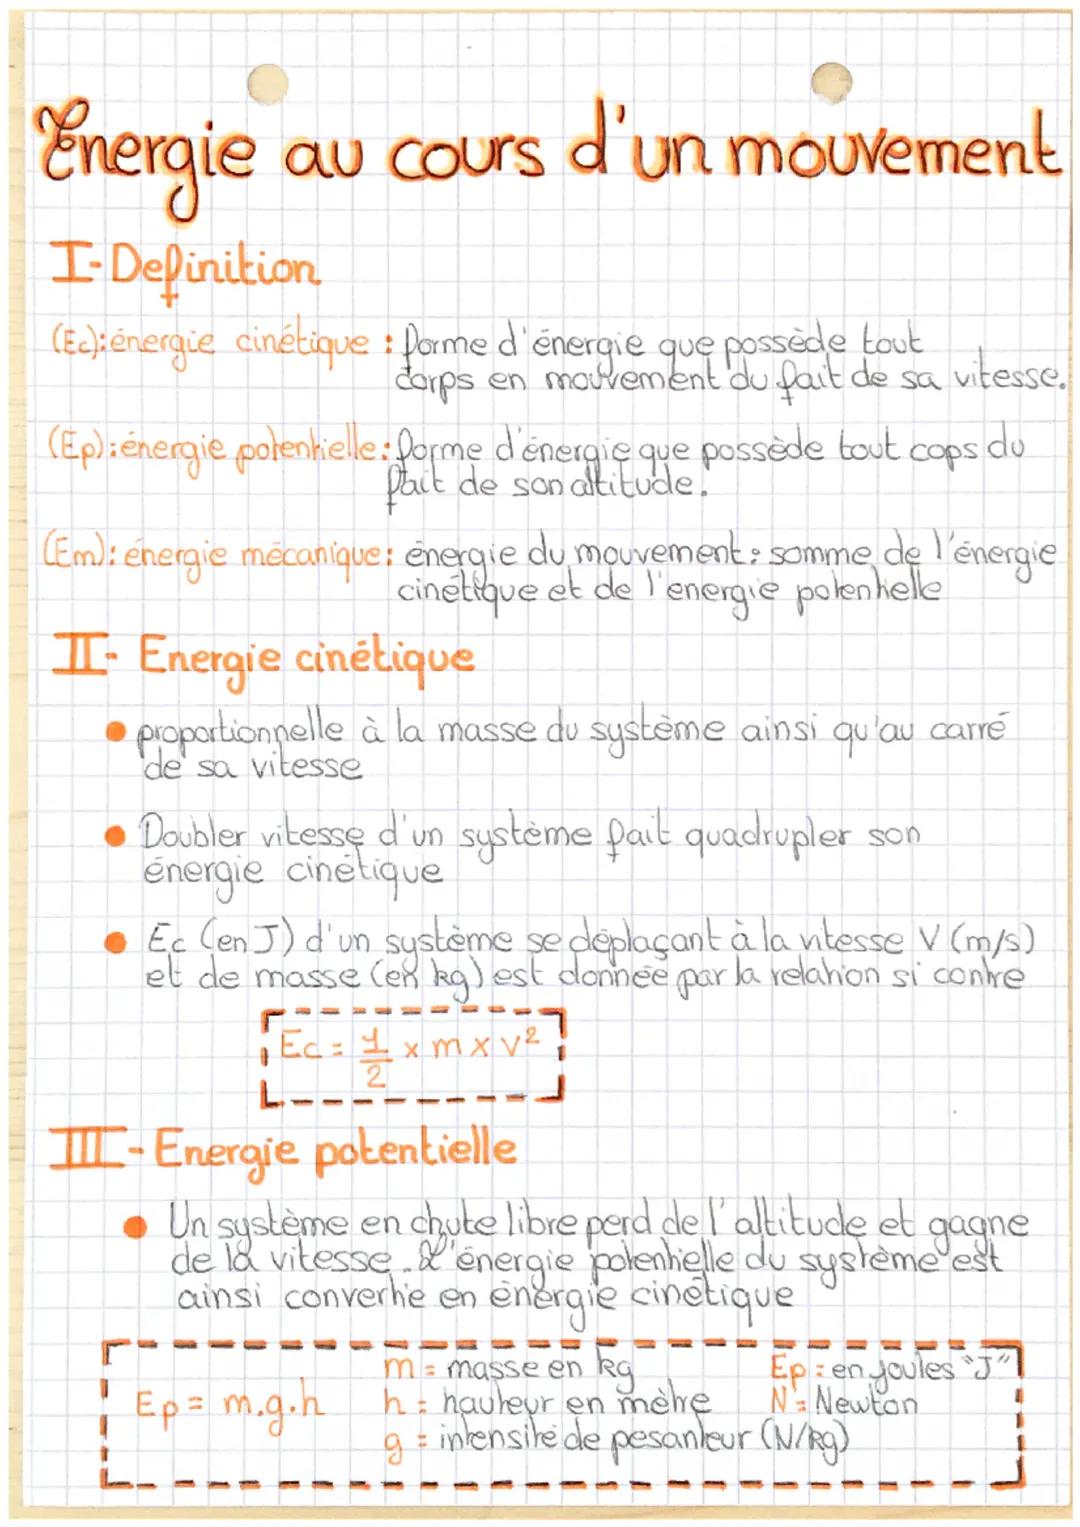 Energie au cours d'un mouvement
I-Definition
(Ec): énergie cinétique : forme d'énergie que possède tout
corps en mouvement du fait de sa vitesse.
(Ep): énergie potentielle: forme d'énergie que possède tout cops du
fait de son altitude.
(Em): énergie mécanique: énergie du mouvement: somme de l'énergie
cinétique et de l'energie potentielle
II- Energie cinétique
• proportionnelle à la masse du système ainsi qu'au carré
de sa vitesse
• Doubler vitesse d'un système fait quadrupler son
énergie cinétique
• Ec (en J) d'un système se déplaçant à la vitesse V (m/s)
et de masse (en kg) est donnée par la relation si contre
Ec = 1/2 x m x v²
III- Energie potentielle
• Un système en chute libre perd de l'altitude et gagne
de la vitesse. L'énergie potentielle du système est
ainsi convertie en énergie cinétique
m = masse en kg Ep : en joules "J"
Ep = m.g.h h = hauteur en mètre N = Newton
g = intensité de pesanteur (N/kg)